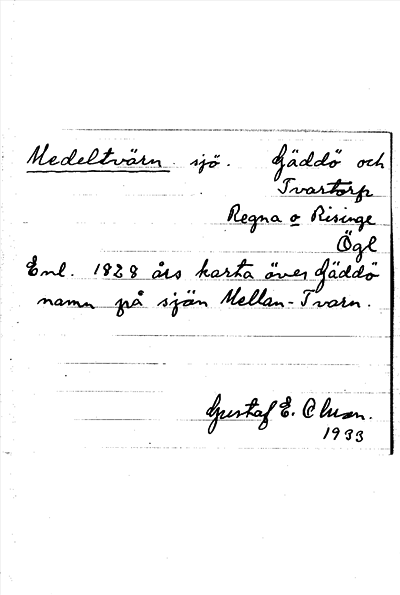 Medeltvärn sjö. Gäddö och
Tvartorp
Regna o Risinge
Ögl
Enl. 1828 års karta över Gäddö
namn på sjön Mellan-Tvarn.
Gustaf E.
1933